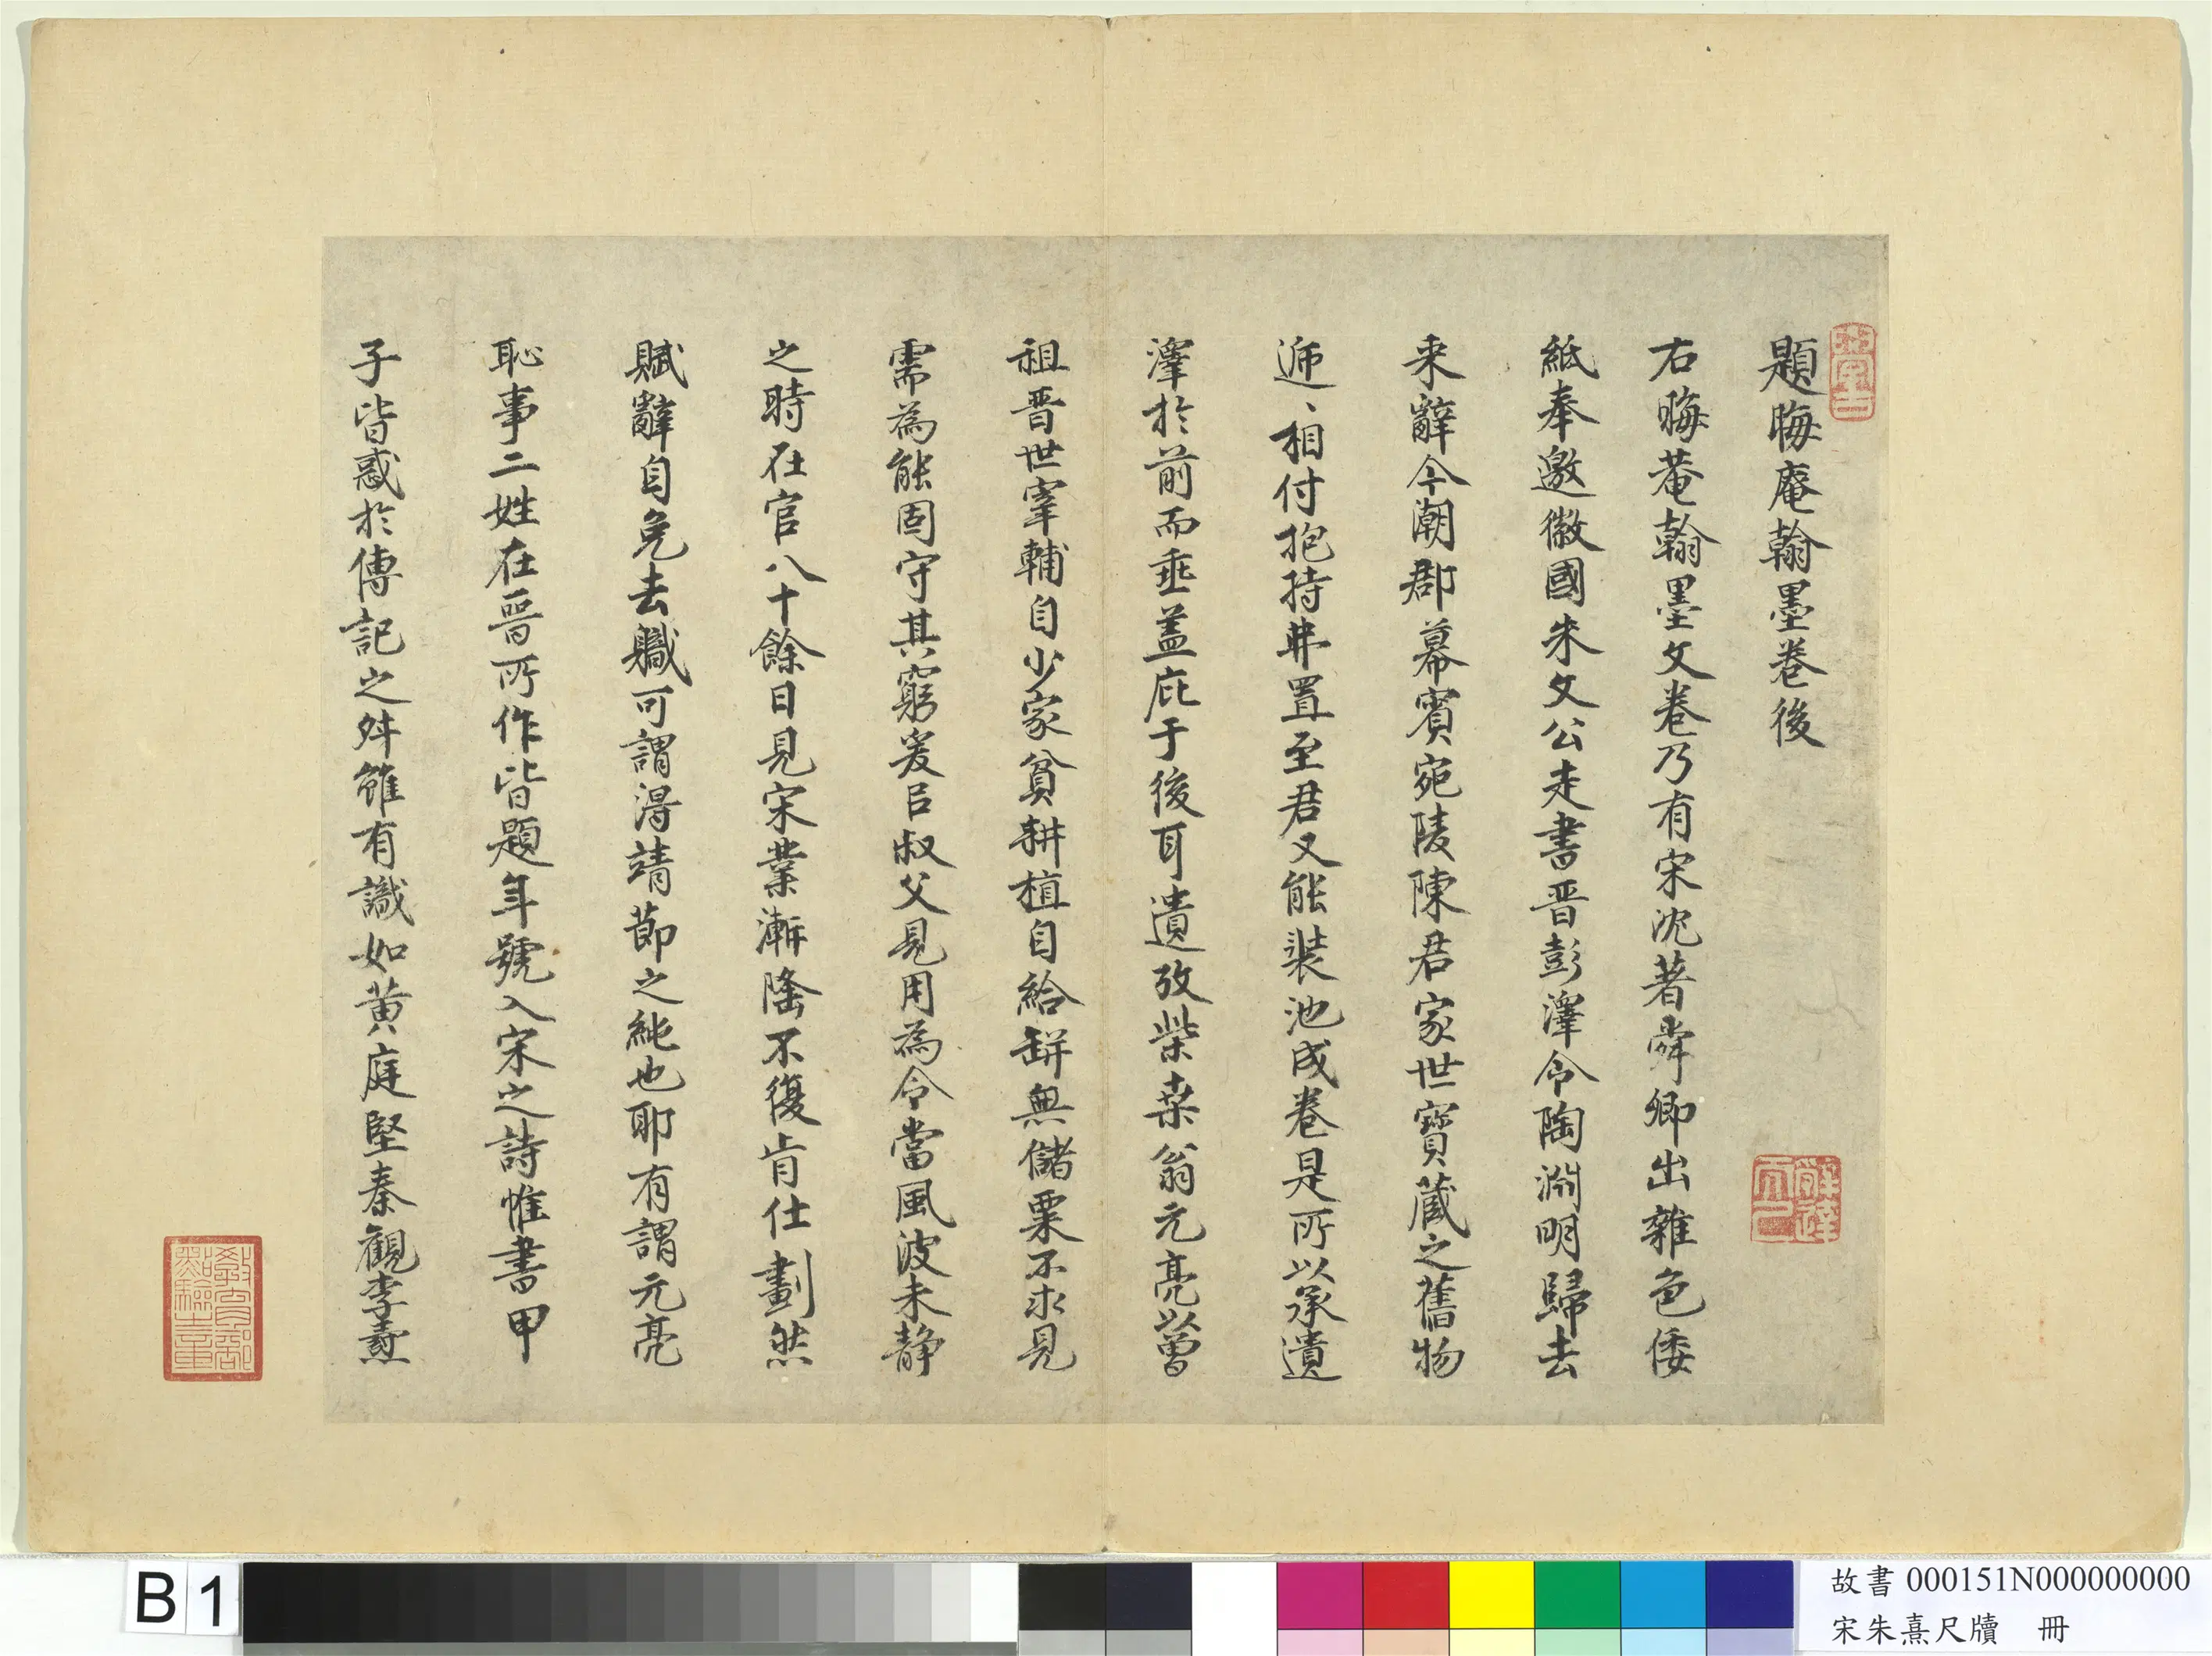 題晦庵翰墨卷後
右晦菴翰墨文卷乃有宋沈著舜卿出雜色倭
紙奉邀徽國朱文公走書晉彭澤令陶淵明歸去
来辭今潮郡幕賓宛陵陳君家世寶藏之舊物
逓、相付抱持弗置至君又能裝池成卷是所以承遺
澤於前而垂盖庇于後耳遺攷柴桑翁元亮以曾
祖晋世宰輔自少家貧耕植自給缾無儲粟不求見
需為能固守其窮爰㠯叔父見用為令當風波未静
之時在官八十餘日見宋業漸隆不復肯仕劃然
賦辭自免去職可謂得靖節之純也耶有謂元亮
恥事二姓在晉所作皆題年號入宋之詩惟書甲
子皆惑於傳記之舛雖有識如黄庭堅秦觀李燾
教育部點驗之章
B 1
故書 000151N000000000
宋朱熹尺牘 冊